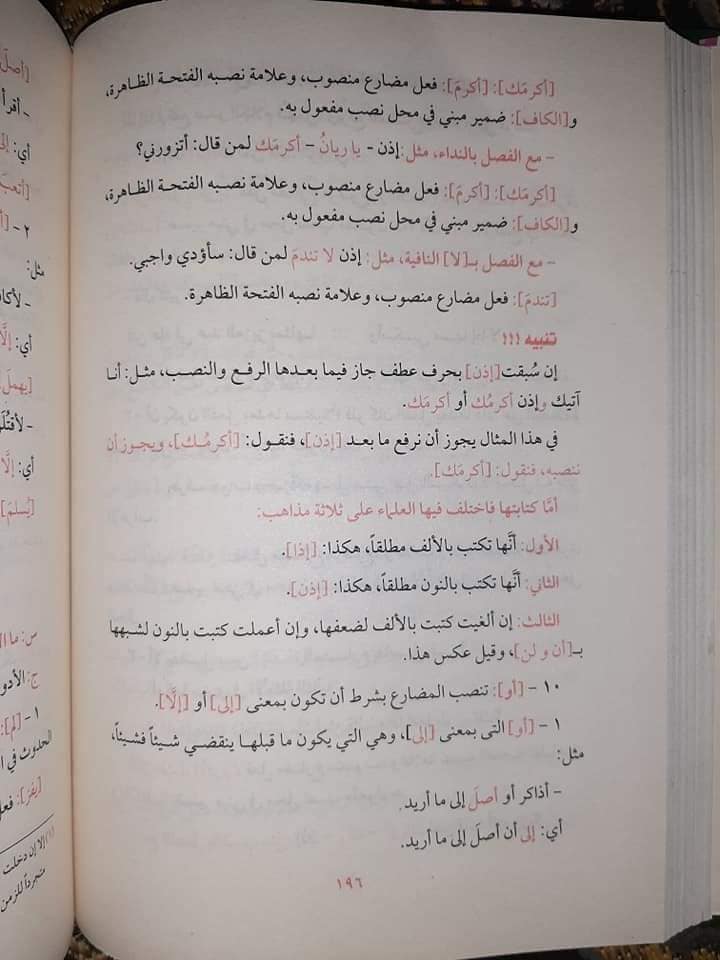 [أكرمَك]: [أكرمَ]: فعل مضارع منصوب، وعلامة نصبه الفتحة الظاهرة،
و[الكاف]: ضمير مبني في محل نصب مفعول به.
- مع الفصل بالنداء، مثل: إذن - يا ريانُ - أكرمَك لمن قال: أتزورني؟
[أكرمَك]: [أكرمَ]: فعل مضارع منصوب، وعلامة نصبه الفتحة الظاهرة،
و[الكاف]: ضمير مبني في محل نصب مفعول به.
- مع الفصل بـ[لا] النافية، مثل: إذن لا تندمَ لمن قال: سأؤدي واجبي.
[تندمَ]: فعل مضارع منصوب، وعلامة نصبه الفتحة الظاهرة.
تنبيه !!!
إن سُبقت [إذن] بحرف عطف جاز فيما بعدها الرفع والنصب، مثل: أنا
آتيك وإذن أكرمُك أو أكرمَك.
في هذا المثال يجوز أن نرفع ما بعد [إذن]، فنقول: [أكرمُـك]، ويجوز أن
ننصبه، فنقول: [أكرمَك].
أمَّا كتابتها فاختلف فيها العلماء على ثلاثة مذاهب:
الأول: أنَّها تكتب بالألف مطلقاً، هكذا: [إذا].
الثاني: أنَّها تكتب بالنون مطلقاً، هكذا: [إذن].
الثالث: إن ألغيت كتبت بالألف لضعفها، وإن أعملت كتبت بالنون لشبهها
بـ[أن و لن]، وقيل عكس هذا.
١٠ - [أو]: تنصب المضارع بشرط أن تكون بمعنى [إلى] أو [إلَّا].
١ - [أو] التى بمعنى [إلى]، وهي التي يكون ما قبلهـا ينقضي شـيئاً فشـيئاً،
مثل:
- أذاكر أو أصلَ إلى ما أريد.
أي: إلى أن أصلَ إلى ما أريد.
١٩٦
[أصلَ
- أقرأ
أي: إلى
[أتعبَ
٢ - [أ
مثل:
- لأكا
أي: إلَّا
[يهملَ]
- لأقتُلَن
أي: إلَّا
[يُسلمَ]
س: ما ال
ج: الأدو
١ - [لم]:
الحدوث في ا
[يفرَّ]: فعل
(١) إلا إن دخلت
متجرداً للزمن